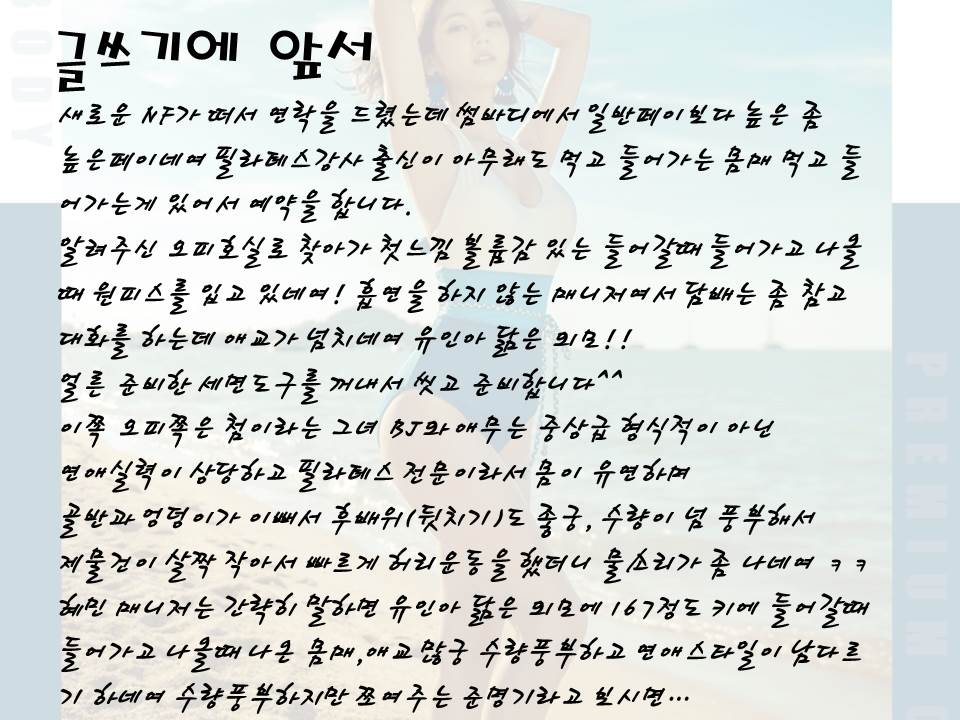 글쓰기에 앞서
새로운 NF가 떠서 연락을 드렸는데 썸바디에서 일반페이보다 높은 좀
높은페이네여 필라테스강사 출신이 아무래도 먹고 들어가는 몸매 먹고 들
어가는게 있어서 예약을 합니다.
알려주신 오피호실로 찾아가 첫느낌 볼륨감 있는 들어갈때 들어가고 나올
때 원피스를 입고 있네여! 흡연을 하지 않는 매니저여서 담배는 좀 참고
대화를 하는데 애교가 넘치네여 유인아 닮은 외모!!
얼른 준비한 세면도구를 꺼내서 씻고 준비합니다^^
이쪽 오피쪽은 첨이라는 그녀 BJ와 애무는 중상급 형식적이 아닌
연애실력이 상당하고 필라테스 전문이라서 몸이 유연하며
골반과 엉덩이가 이뻐서 후배위(뒷치기)도 좋궁, 수량이 넘 풍부해서
제물건이 살짝 작아서 빠르게 허리운동을 했더니 물소리가 좀 나네여 ㅋㅋ
혜민 매니저는 간략히 말하면 유인아 닮은 외모에 167정도 키에 들어갈때
들어가고 나올때 나온 몸매,애교 많궁 수량풍부하고 연애스타일이 남다르
기 하네여 수량풍부하지만 쪼여주는 준명기라고 보시면...
BODY
PREMIUM